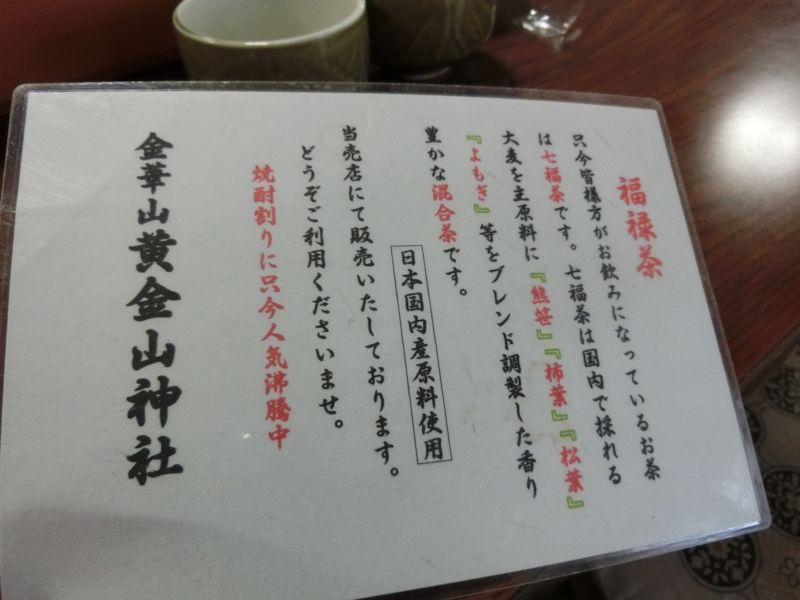 福禄茶
只今皆様方がお飲みになっているお茶
は七福茶です。七福茶は国内で採れる
大麦を主原料に『熊笹』『柿葉』『松葉』
『よもぎ』等をブレンド調製した香り
豊かな混合茶です。
日本国内産原料使用
当売店にて販売いたしております。
どうぞご利用くださいませ。
焼酎割りに只今人気沸騰中
金華山黄金山神社